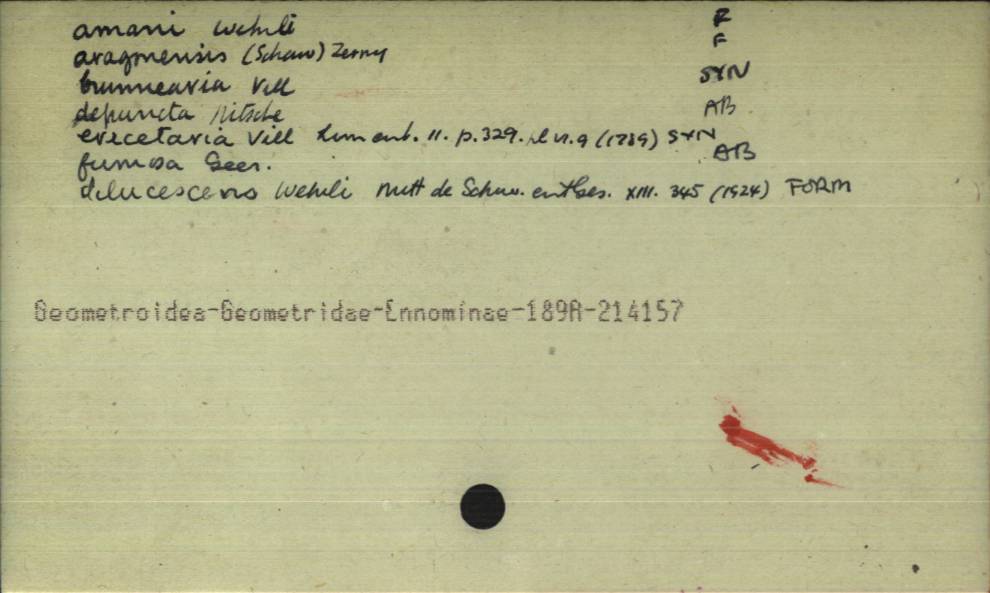 amani Wehrli F
aragonensis (Schaw) Zerny F
brunnearia Vill SYN
depuncta Nitsche AB
ericetaria Vill Linn ent. 11. p. 329. (1789) SYN
fumosa Geer. AB
dilucescens Wehrli Mitt de Schw. ent Ges. XIII. 345 (1924) FORM
Geometroidea-Geometridae-Ennominae-189A-214157